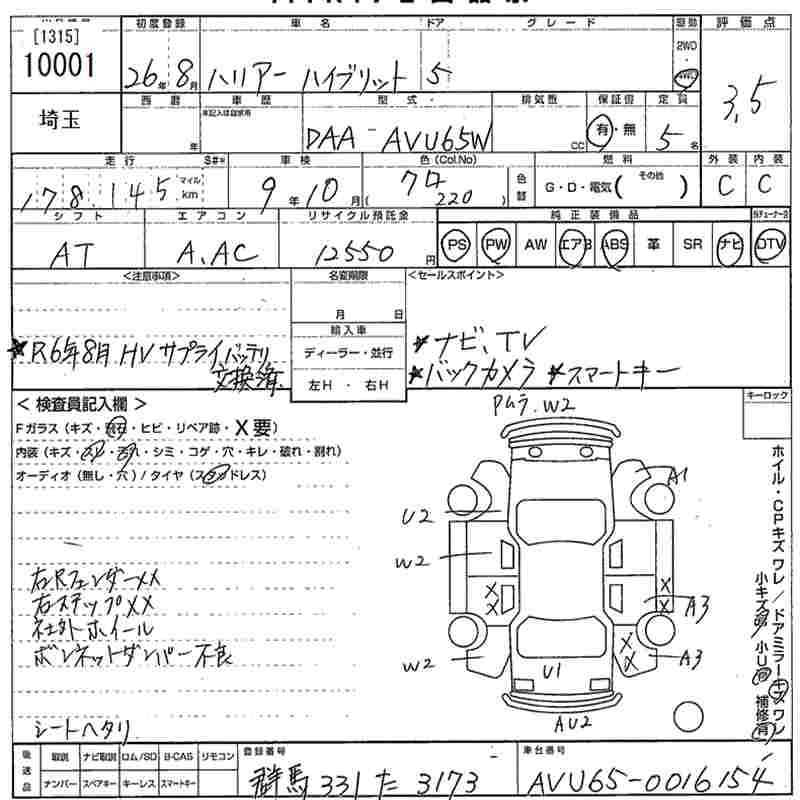 [1315]
10001
埼玉
初度登録 車名 ドア グレード 駆動 評価点
26年8月 ハリアー ハイブリット 5 2WD 4WD 3,5
西暦 車歴 型式 排気数 保証書 定員
年 未記入は自家用 DAA-AVU65W CC 有・無 5名
走行 車検 色(Col.No) 燃料 外装 内装
178,145 マイル km 9年10月 クロ 220 色替 G・D・電気( その他 ) C C
シフト エアコン リサイクル預託金 純正装備品
AT A.AC 12550円 PS PW AW エアB ABS 革 SR ナビ DTV
<注意事項> 名変期限 <セールスポイント>
月 日
輸入車
ディーラー・並行
左H・右H
★R6年8月 HVサプライバッテリ
交換済
★ナビ、TV
★バックカメラ ★スマートキー
<検査員記入欄>
Fガラス(キズ・飛石・ヒビ・リペア跡・X要)
内装(キズ・スレ・汚れ・シミ・コゲ・穴・キレ・破れ・割れ)
オーディオ(無し・穴)/タイヤ(スタッドレス)
右Rフェンダーxx
右ステップxx
社外ホイール
ボンネットダンパー不良
シートヘタリ
PムラW2
A1
U2
W2
XX
XX
A3
XX
W2
A3
U1
AU2
キーロック
ホイル・CPキズ ワレ/ドアミラーキズ ワレ
小キズ有 小U有 補修有
後送品 取説 ナビ取説 ロム/SD B-CAS リモコン
ナンバー スペアキー キーレス スマートキー
登録番号 車台番号
群馬 331 た 3173 AVU65-0016154